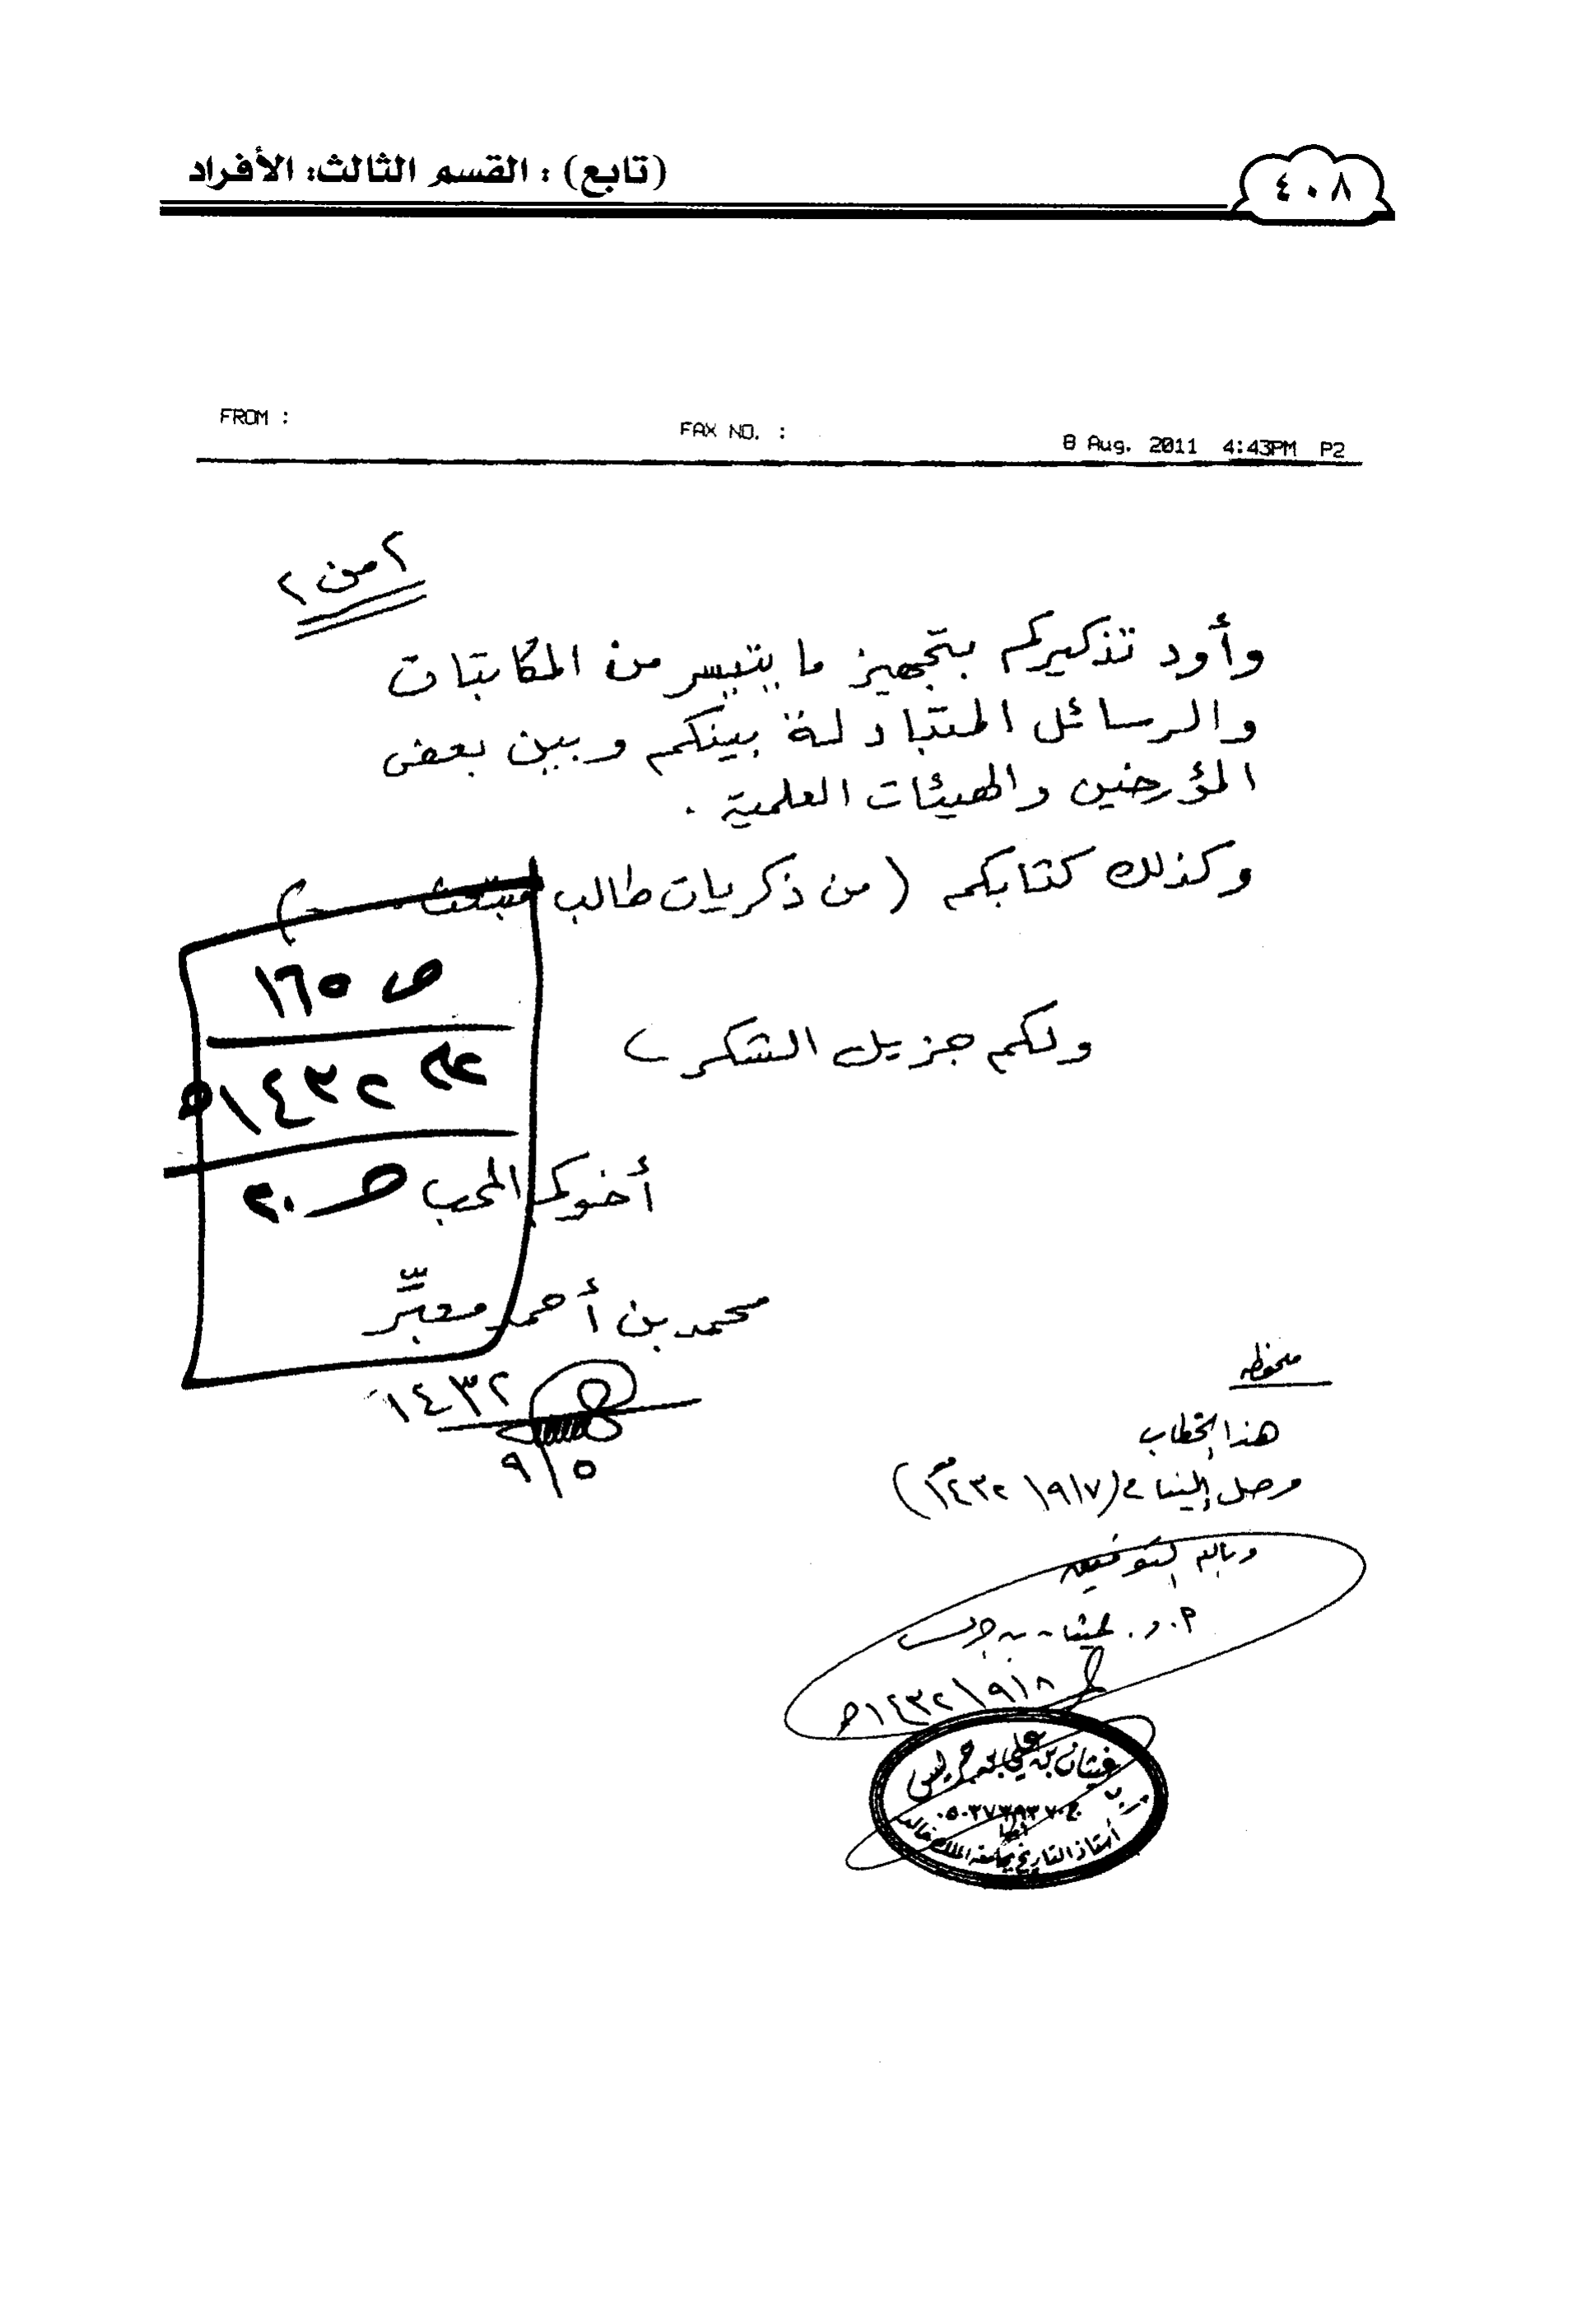 ٤٠٨
(تابع) : القسم الثالث: الأفراد
FROM :
FAX NO. :
8 Aug. 2011 4:43PM P2
٢ من ٢
وأود تذكيركم بتجهيز ما يتيسر من المكاتبات
والرسائل المتبادلة بينكم وبين بعض
المؤرخين والهيئات العلمية .
وكذلك كتابكم ( من ذكريات طالب مبتعث . . )
ص ١٦٥
١٤٣٢هـ
ولكم جزيل الشكر ،
أخوكم المحب
ص ٢٠
محمد بن أحمد معبّر
١٤٣٢
٩/٥
ملحوظة
هذا الخطاب
وصل إلينا في (١٤٣٢/٩/٧هـ)
وبالله التوفيق
أ. د. غيثان بن جريس
١٤٣٢/٩/٨هـ
غيثان بن علي بن جريس
أبها
أستاذ التاريخ بجامعة الملك خالد